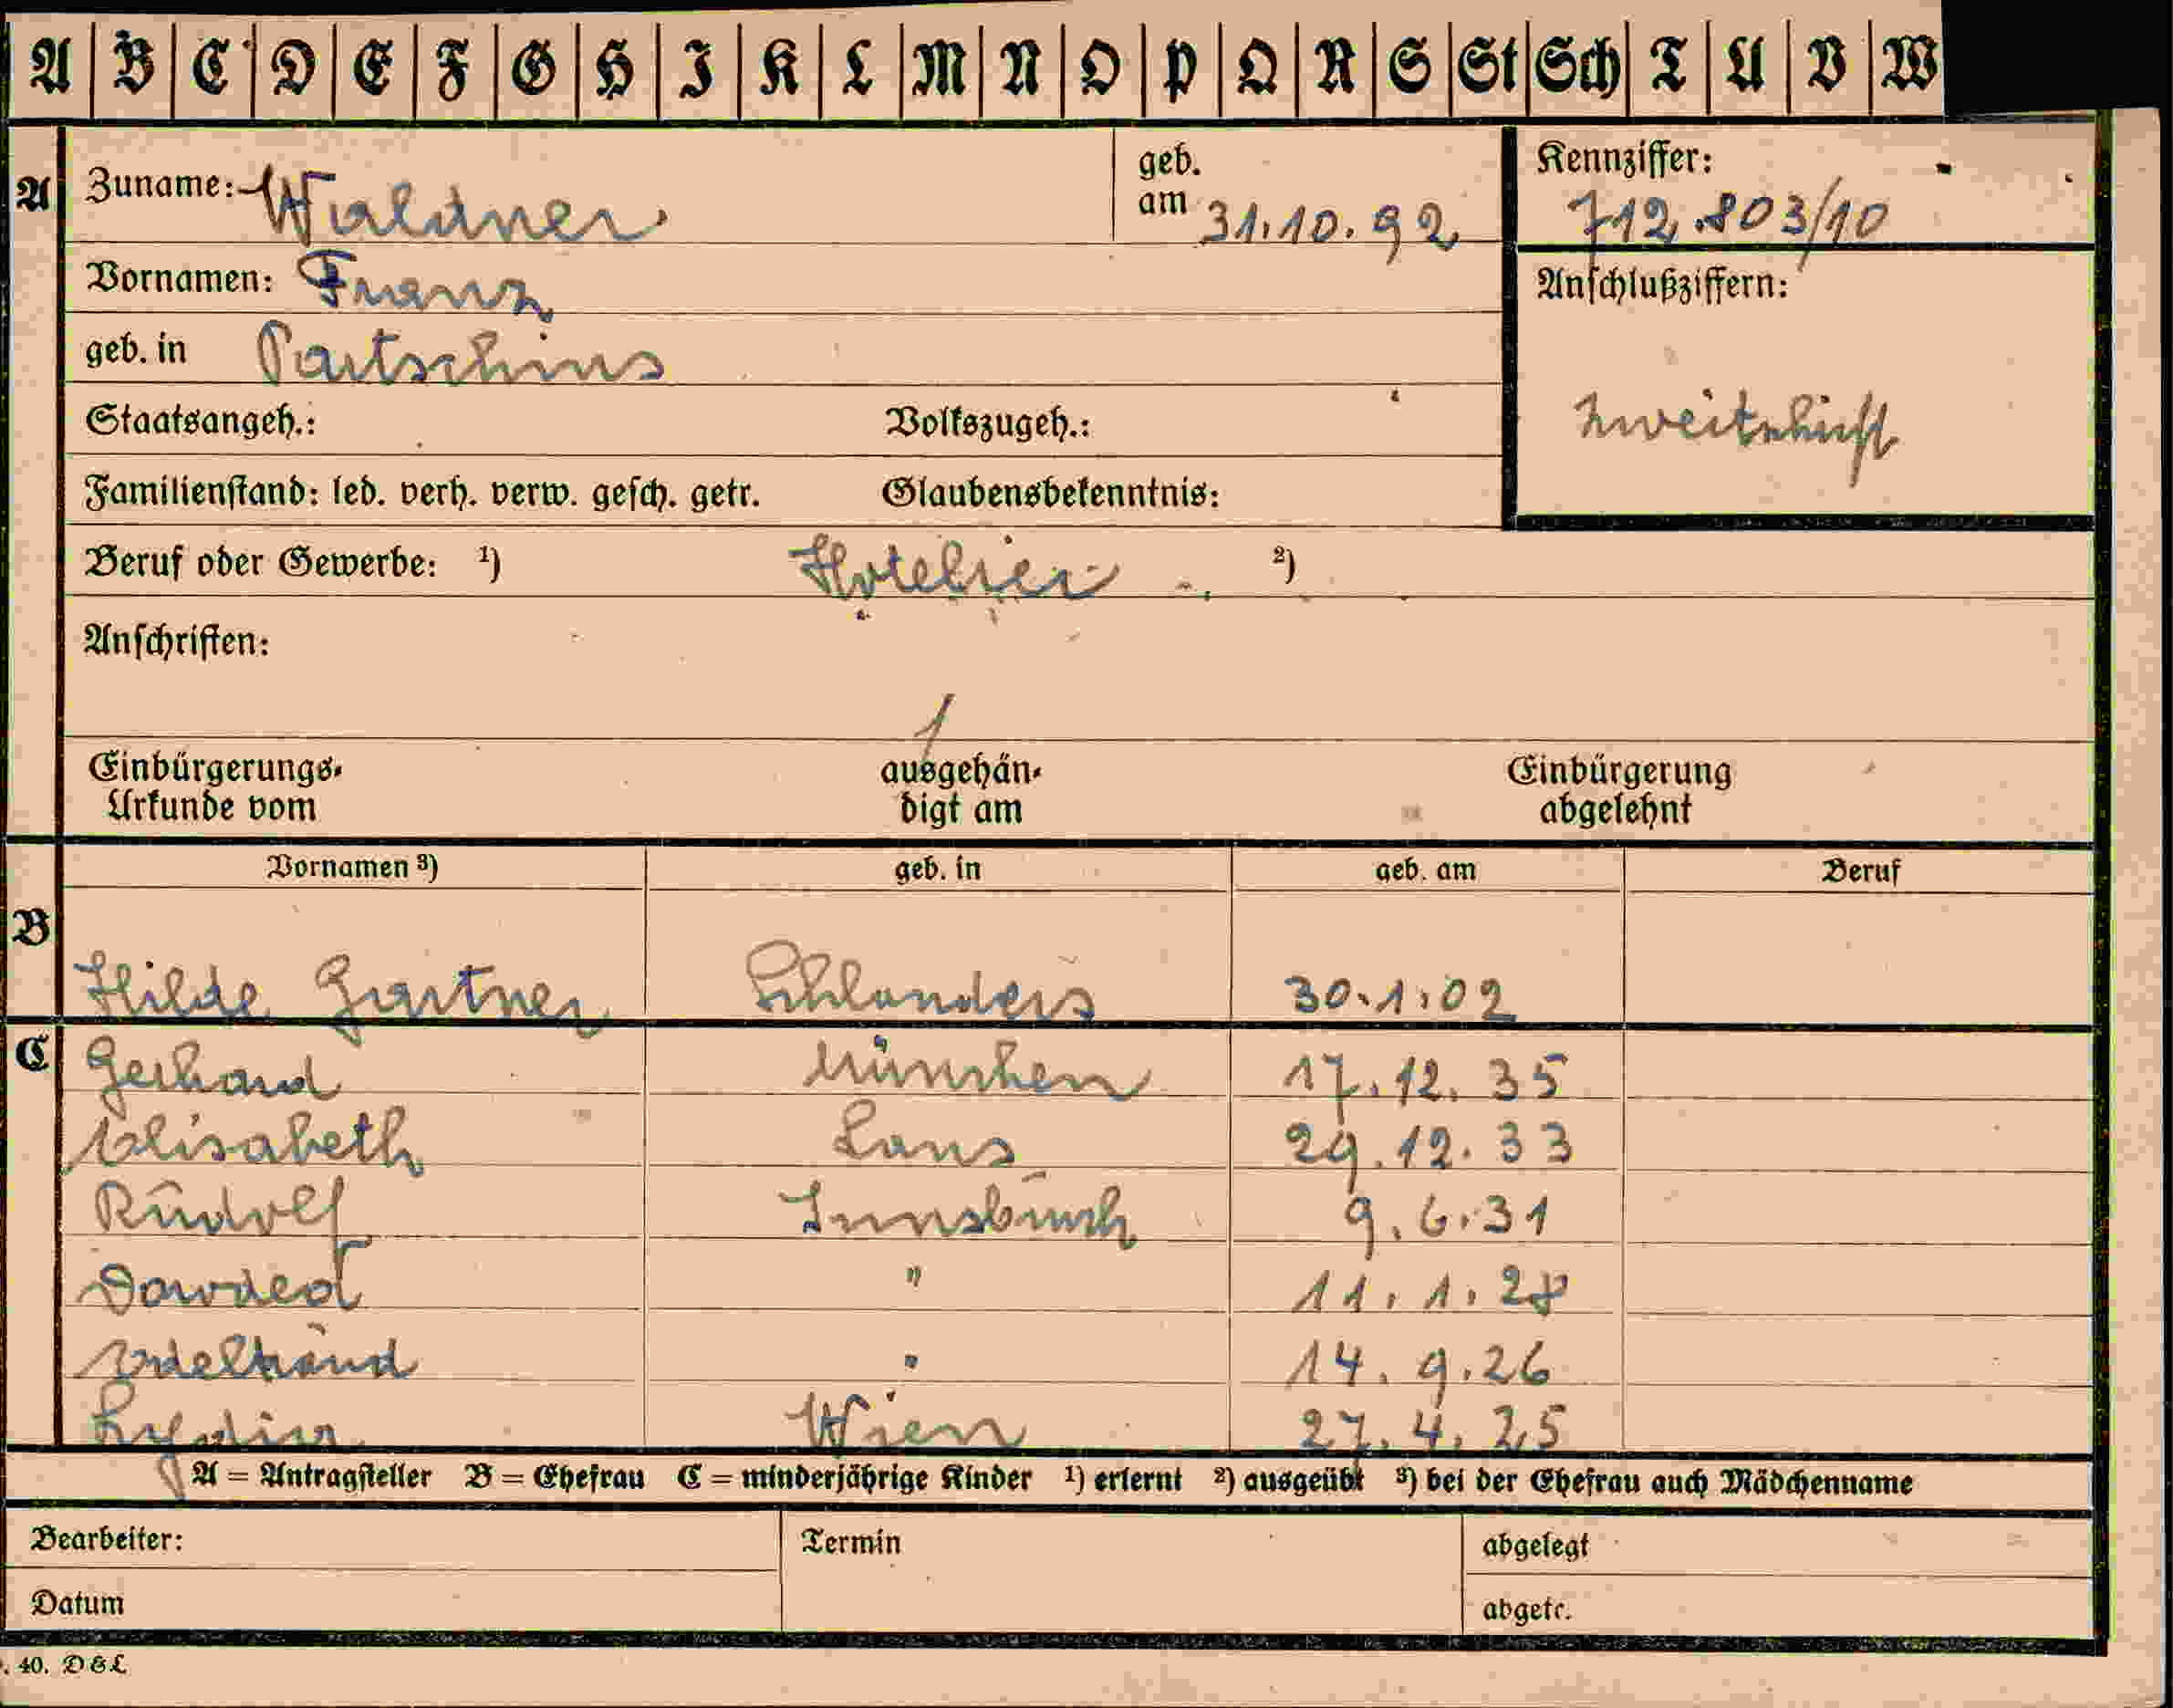 A B C D E F G H I K L M N O P Q R S St Sch T U V W
A Zuname: Waldner geb. am 31.10.92 Kennziffer: 712.803/10
Vornamen: Franz Anschlußziffern:
geb. in Partschins
Staatsangeh.: Volkszugeh.: Zweitschrift
Familienstand: led. verh. verw. gesch. getr. Glaubensbekenntnis:
Beruf oder Gewerbe: ¹) Hotelier ²)
Anschriften:
Einbürgerungs- ausgehän- Einbürgerung
Urkunde vom digt am abgelehnt
Vornamen ³) geb. in geb. am Beruf
B
Hilde Gartner Schlanders 30.1.02
C Gerhard München 17.12.35
Elisabeth Lans 29.12.33
Rudolf Innsbruck 9.6.31
" 11.1.28
" 14.9.26
Wien 27.4.25
A = Antragsteller B = Ehefrau C = minderjährige Kinder ¹) erlernt ²) ausgeübt ³) bei der Ehefrau auch Mädchenname
Bearbeiter: Termin abgelegt
Datum abgetr.
. 40. D & L